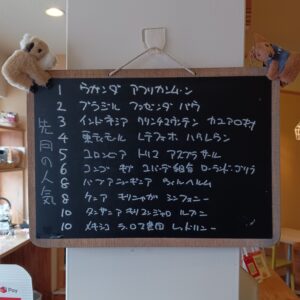 先月の人気
1 ウガンダ アフリカンムーン
2 ブラジル ファゼンダ バウ
3 インドネシア クリンチマウンテン カユアロ
4 東ティモール レテフォホ ハトレラン
5 コロンビア トリマ アスプラサール
6 コンゴ キブ コパーデ組合 ローランド・ゴリラ
8 パプアニューギニア ウィルヘルム
8 ケニア キリニャガ シンフォニー
10 タンザニア キリマンジャロ
10 メキシコ 農園 レッドハニー
Pay